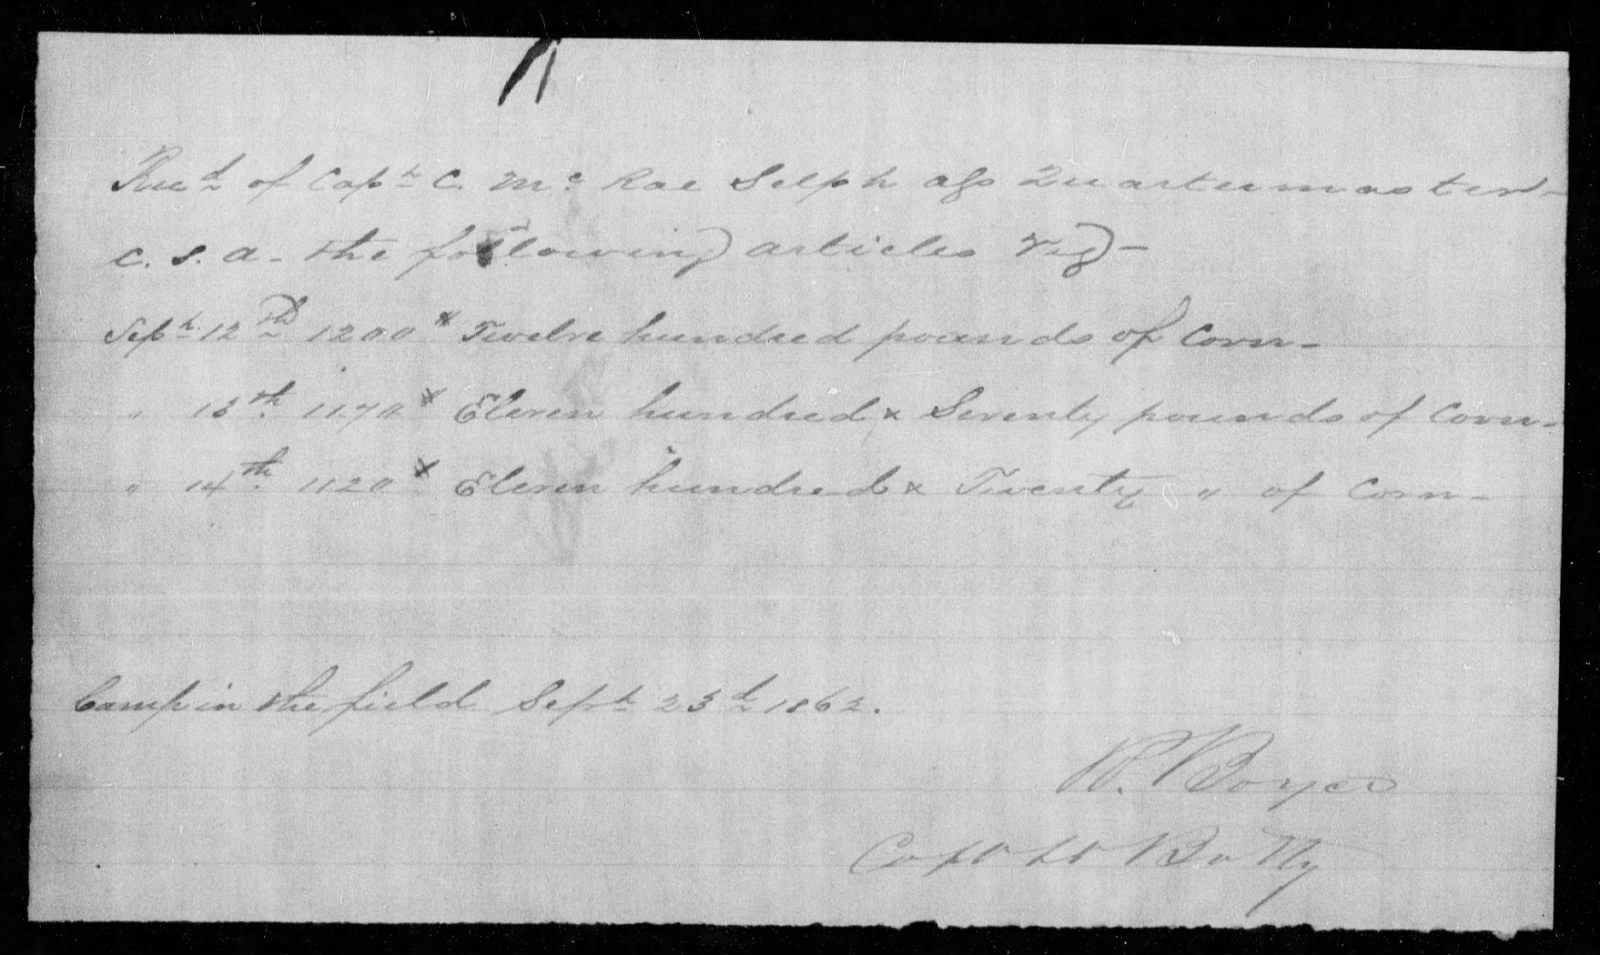 Recd of Capt C. Mc Rae Selph ass Quartermaster
C. S. A. the following articles Viz -
Sept 12th 1200 # Twelve hundred pounds of Corn -
" 13th 1170 # Eleven hundred & Seventy pounds of Corn -
" 14th 1120 # Eleven hundred & Twenty " of Corn -
Camp in the field Sept 23d 1862.
R. Boyce
Capt Batty